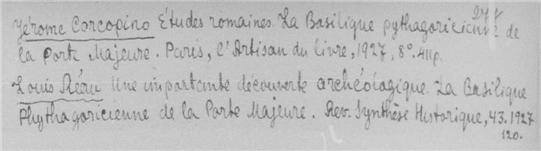 277
Jérome Carcopino Études romaines. La Basilique pythagoricienne de
la Porte Majeure. Paris, L'Artisan du livre, 1927, 8º. 411p.
Louis Réau Une importante découverte archéologique. La Basilique
Phythagoricienne de la Porte Majeure. Rev. Synthèse Historique, 43. 1927
120.